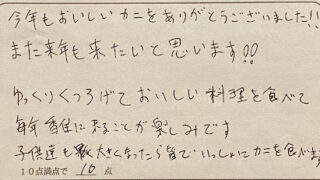 今年もおいしいカニをありがとうございました!!
また来年も来たいと思います!!
ゆっくりくつろげておいしい料理を食べて
毎年香住に来ることが楽しみです
子供達も大きくなったら皆でいっしょにカニを食べ
10点満点で 10 点